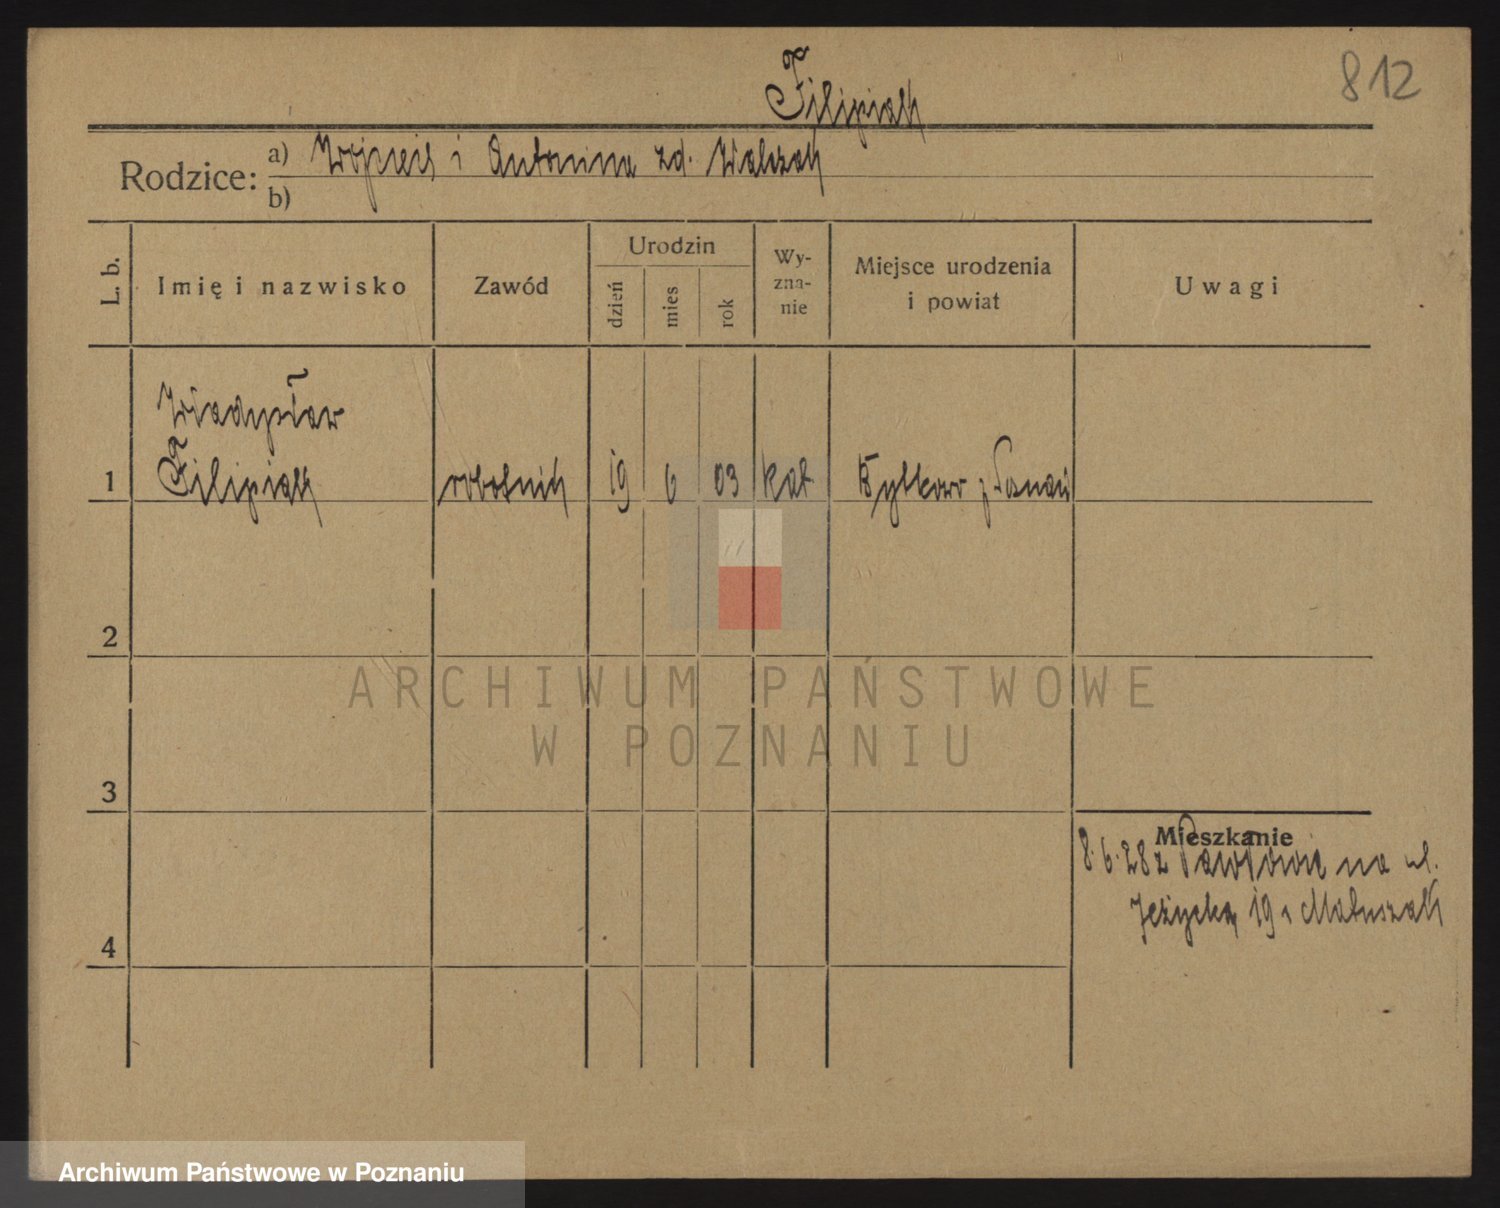 812
Filipiak
Rodzice: a) Wojciech i Antonina zd. Walczak
b)
L. b.
Imię i nazwisko
Zawód
Urodzin
dzień
mies
rok
Wy-
zna-
nie
Miejsce urodzenia
i powiat
Uwagi
Władysław
1 Filipiak robotnik 19 6 03 kat
2
3
4
Mieszkanie
8.6.28 z na ul.
Jeżycką 19 Matuszak
ARCHIWUM PAŃSTWOWE
W POZNANIU
Archiwum Państwowe w Poznaniu